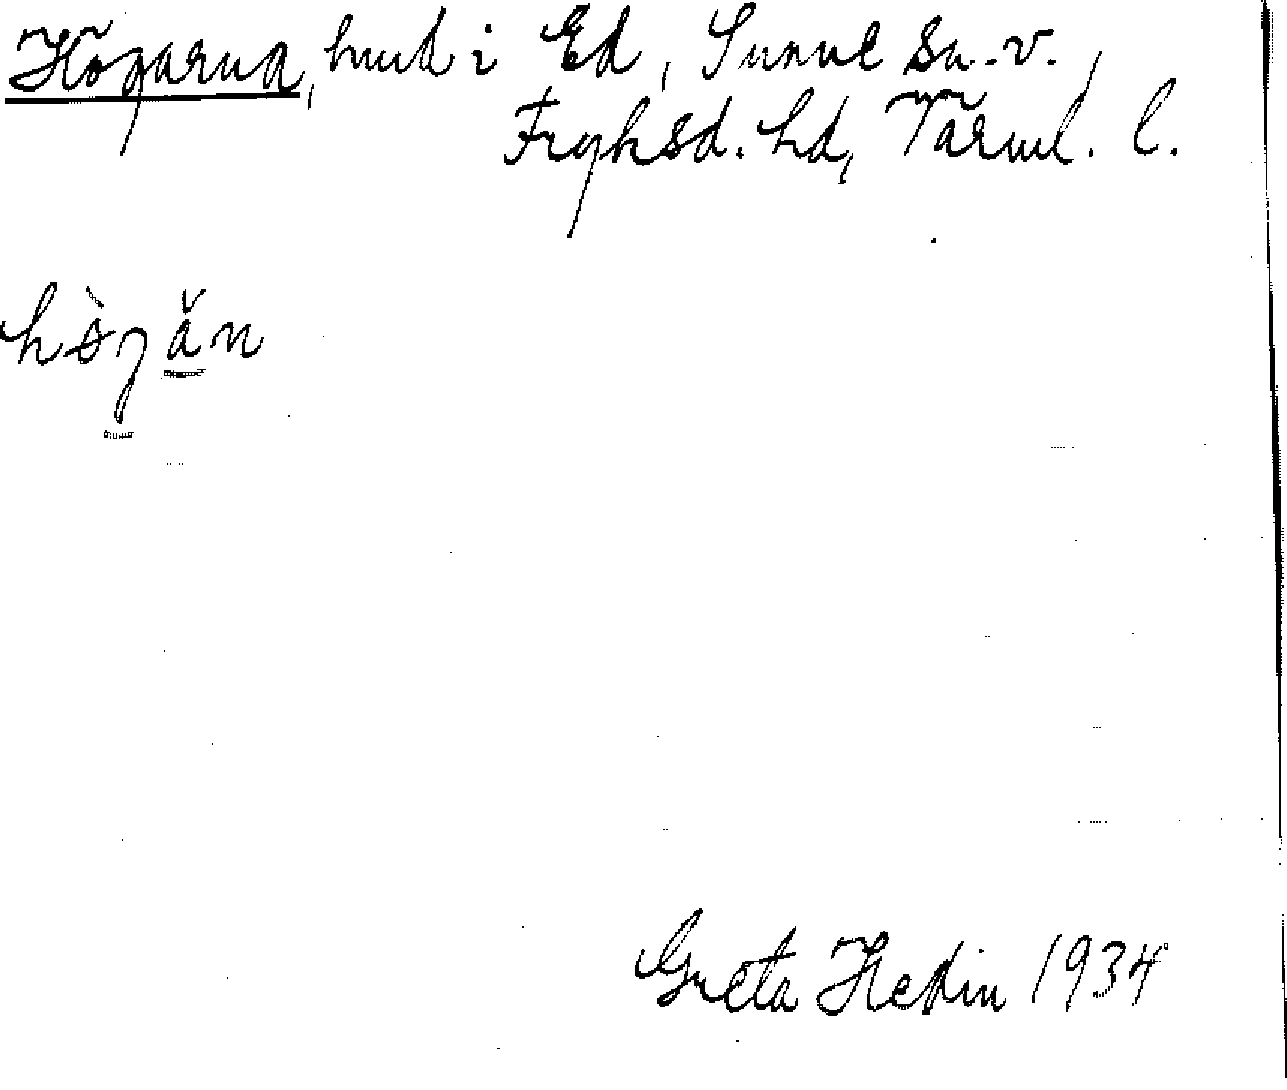 Högarna, hmd i Ed, Sunne sn. v.,
Fryksd. hd, Värml. l.
hògăn
Greta Hedin 1934